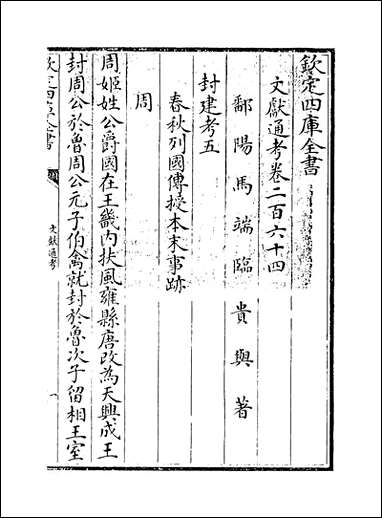 欽定四庫全書
文獻通考卷二百六十四
鄱陽馬端臨貴與著
封建考五
春秋列國傳授本末事跡
周
周姬姓公爵國在王畿内扶風雍縣唐改為天興成王
封周公於魯周公元子伯禽就封於魯次子留相王室
欽定四庫全書
文獻通考